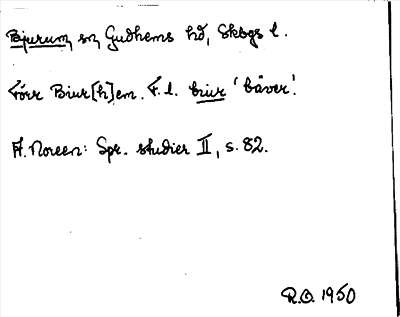 Bjurum, sn, Gudhems hd, Skbgs l.
Förr Biur[h]em. F. l. biur 'bäver'.
A. Noreen: Spr. studier II, s. 82.
R.O. 1950